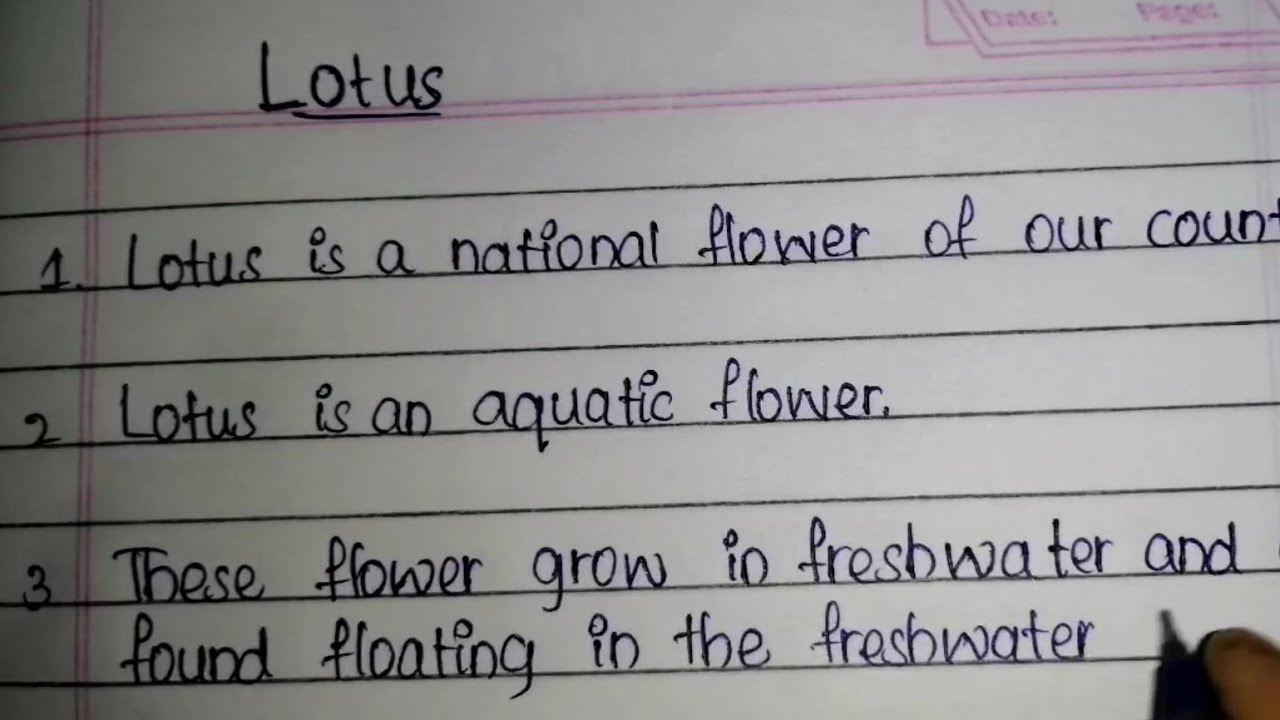 Date: Page:
Lotus
1. Lotus is a national flower of our count
2 Lotus is an aquatic flower.
3 These flower grow in freshwater and
found floating in the freshwater